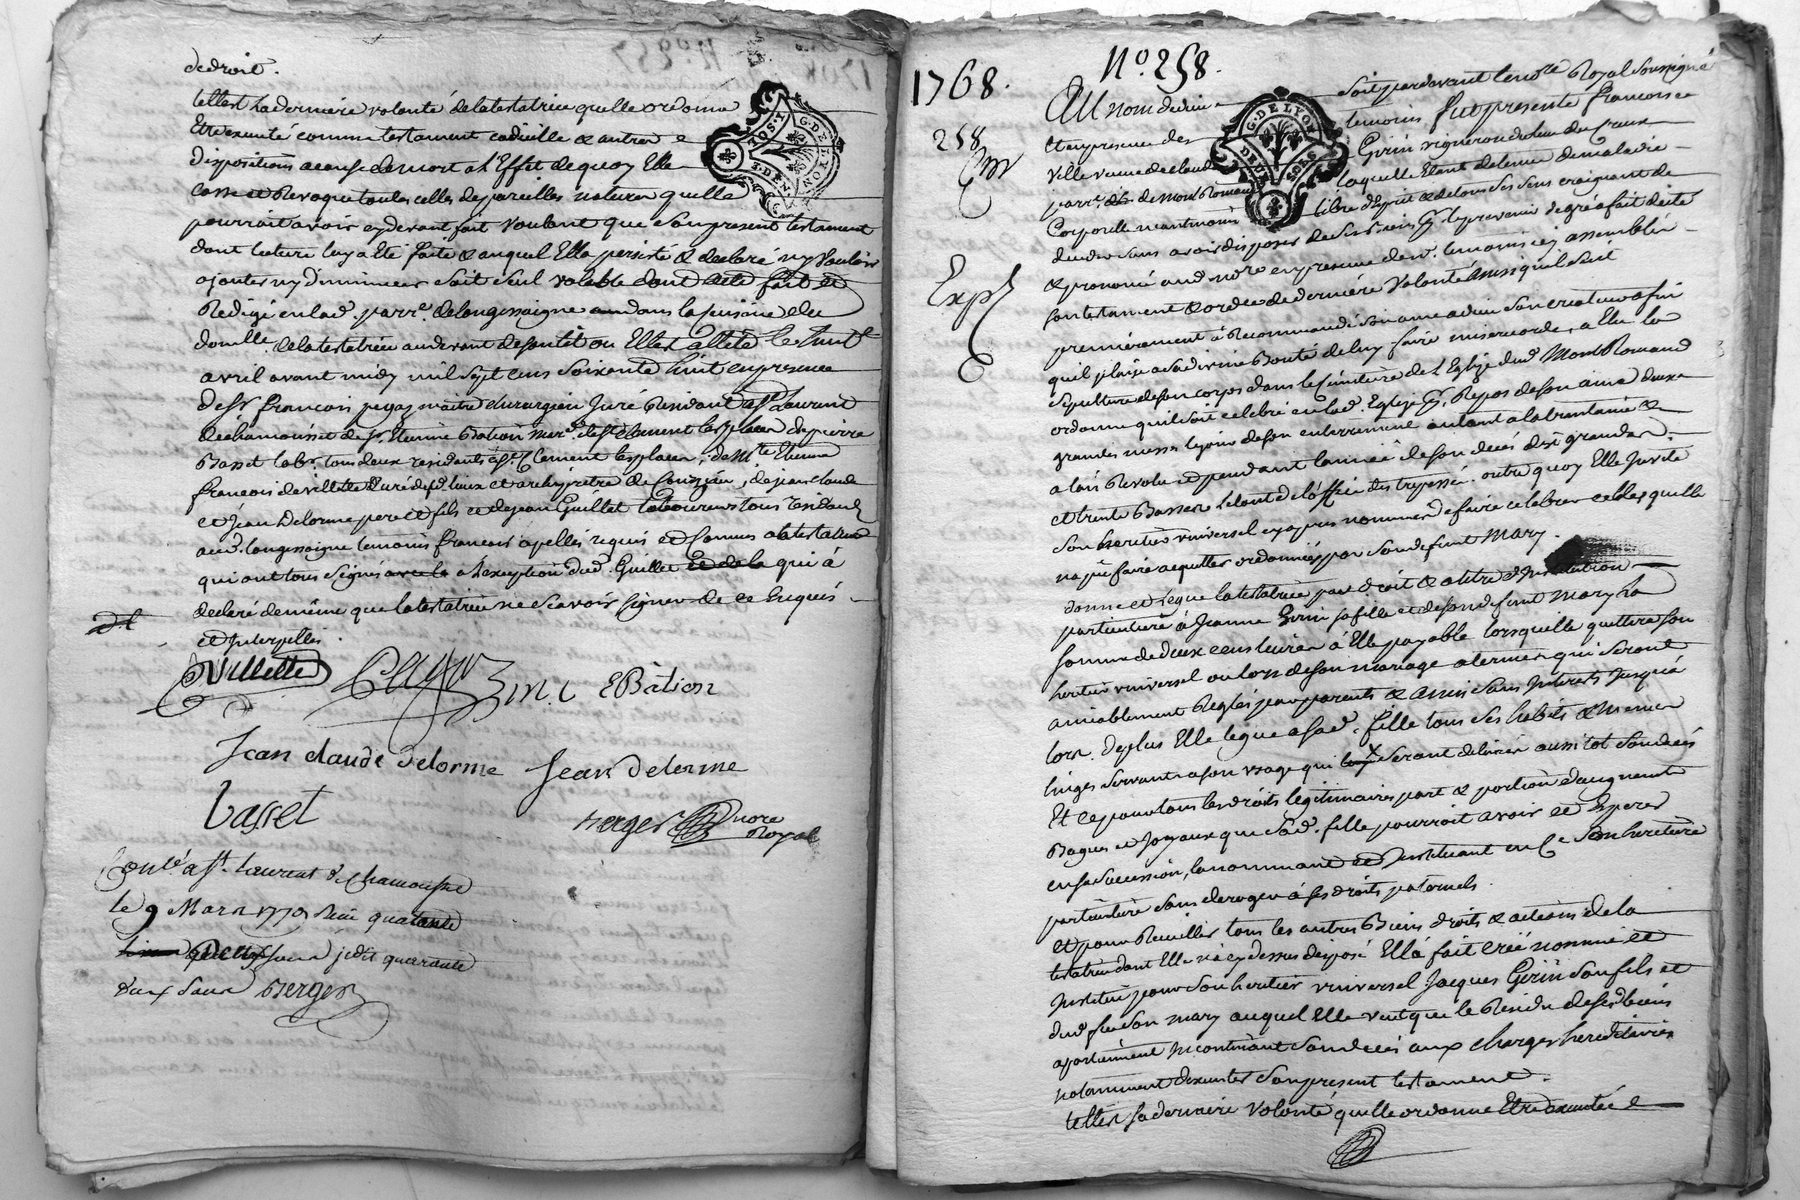 de droit.
telle est la derniere volonté de la testatrice quelle ordonne
Etre executé comme testament codicille & autres
dispositions a cause de mort a l'Effet de quoy Elle
casse et Revoque toutes celles de pareilles natures quelle
pourrait avoir cy devant fait voulant que son present testament
dont lecture luy a eté faite & auquel Elle persiste & declaré ny vouloir
ajouter ny diminuer soit seul valable dont acte fait et
Redigé en lad. parr.e de longessaigne dans la cuisine du
domille de la testatrice au devant de son lit ou Elle est alitée le huit
avril avant midy mil sept cens soixante huit en presence
de Sr. françois maitre chirurgien Juré Residant a St. Laurent
de chamousset de Sr. Etienne Bation mar.d de St. Clement les places de pierre
Basset lab.r tous deux residants a St. Clement les places, de M.re Etienne
françois devillette Curé dud. lieux et archiprêtre de Courzieu, de jean claude
et Jean Delorme pere et fils et de jean Guillet laboureurs tous residants
aud. longessaigne temoins françois apellés requis et connus a la testatrice
qui ont tous signés a l'exception dud. Guillet qui à
declaré de même que la testatrice ne scavoir signer de ce Enquis
et Interpellés.
DeVillette M. C EBâtion
Jean claude delorme Jean delorme
basset Berger no.re Royal
Con.lé a St. Laurent de chamousset
le 9 Mars 1770 Reçu quarante
deux sous Berger
N.o 258.
1768.
258
Exp
Au nom de dieu soit par devant le no.re Royal soussigné
et en presence des temoins fut presente françoise
Ville veuve de claude Girin vigneron du lieu de
parr.e de Mont Romand laquelle Etant detenue de maladie
Corporelle neantmoins libre d'Esprit & de tous ses sens craignant de
deceder sans avoir disposer de ses biens pr. le prevenir de gré a fait dicté
& prononcé aud. no.re en presence desd. temoins icy assemblés
son testament & ordre de derniere Volonté ainsi quil suit
premierement à Recommandé son ame a dieu son createur afin
quil plaise a sa divine Bonté de luy faire misericorde, a Elu la
sepulture de son corps dans le Cimetiere de l'Eglise dud. Mont Romand
ordonne quil soit celebré en lad. Eglise pr. le Repos de son ame deux
grandes messes le jour de son enterrement autant a la trantaine &
a l'an Revolu et pendant l'année de son decés dix grandes
et trente Basses le tout de l'office des trepassés. outre quoy Elle Invite
son heritier universel cy apres nommer de faire celebrer celles quelle
na pu faire acquitter ordonnées par son defunt Mary.
donne et legue la testatrice par droit & a titre d'Institution
particuliere à Jeanne Girin sa fille et de son defunt mary la
somme de deux cens livres à Elle payable lorsquelle quittera son
heritier universel ou lors de son mariage a termes qui seront
amiablement Reglés par parents & amis sans Interets Jusqu'à
lors. De plus Elle legue a sad. fille tous ses habits & Menus
linges servants a son usage qui seront delivrés aussitot son decés
Et ce pour tous les droits legitimaires part & portion d'augment
Bagues et Joyaux que sad. fille pourroit avoir et Esperer
en sa succession, la nommant et Instituant en Ce son heritiere
particuliere sans deroger à ses droits paternels.
et pour Recueillir tous les autres Biens droits & actions de la
testatrice dont Elle n'à cy dessus disposé Elle à fait créé nommé et
Institué pour son heritier universel Jacques Girin son fils et
dud. feu son mary auquel Elle veut que le Residu de ses d. biens
apartiennent Incontinant son decés aux charges hereditaires
notamment d'executer son present testament.
telle est sa derniere Volonté quelle ordonne Etre executée